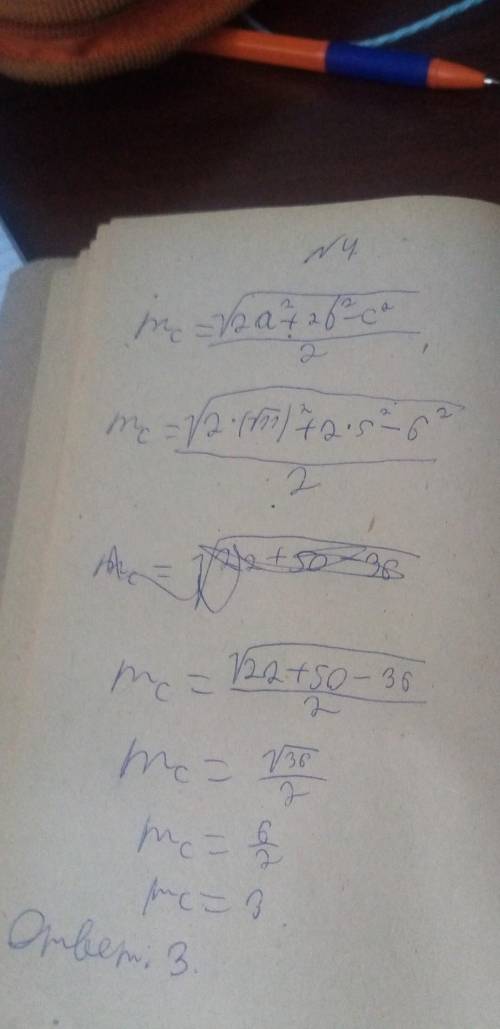 №4
m_c = √(2a² + 2b² - c²) / 2
m_c = √(2·(√11)² + 2·5² - 6²) / 2
m_c = √(22 + 50 - 36
m_c = √(22 + 50 - 36) / 2
m_c = √36 / 2
m_c = 6/2
m_c = 3
Ответ: 3.